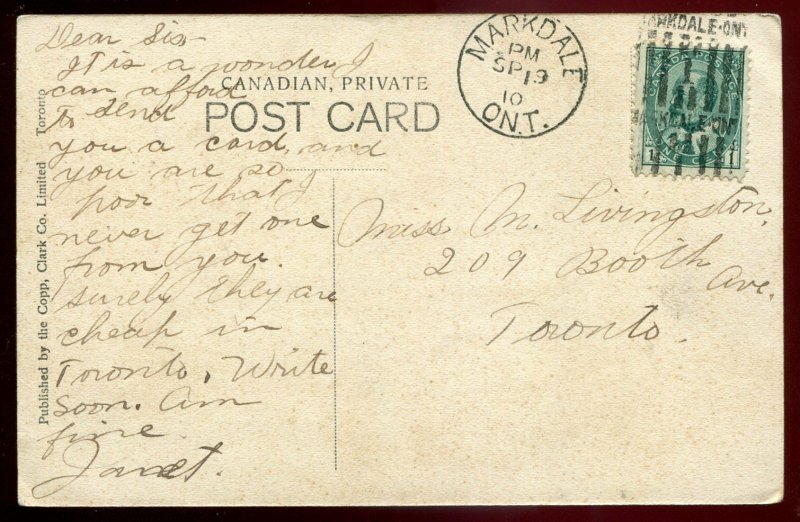 Dear Sis
It is a wonder I
can afford
to send
you a card, and
you are so
poor that I
never get one
from you.
Surely they are
cheap in
Toronto. Write
soon. Am
fine.
Janet.
CANADIAN, PRIVATE
POST CARD
Published by the Copp, Clark Co. Limited Toronto
MARKDALE
PM
SP 19
10
ONT.
MARKDALE-ONT
CANADA POSTAGE
MARKDALE-ONT
1 1
Miss M. Livingston,
209 Booth
Ave.
Toronto.